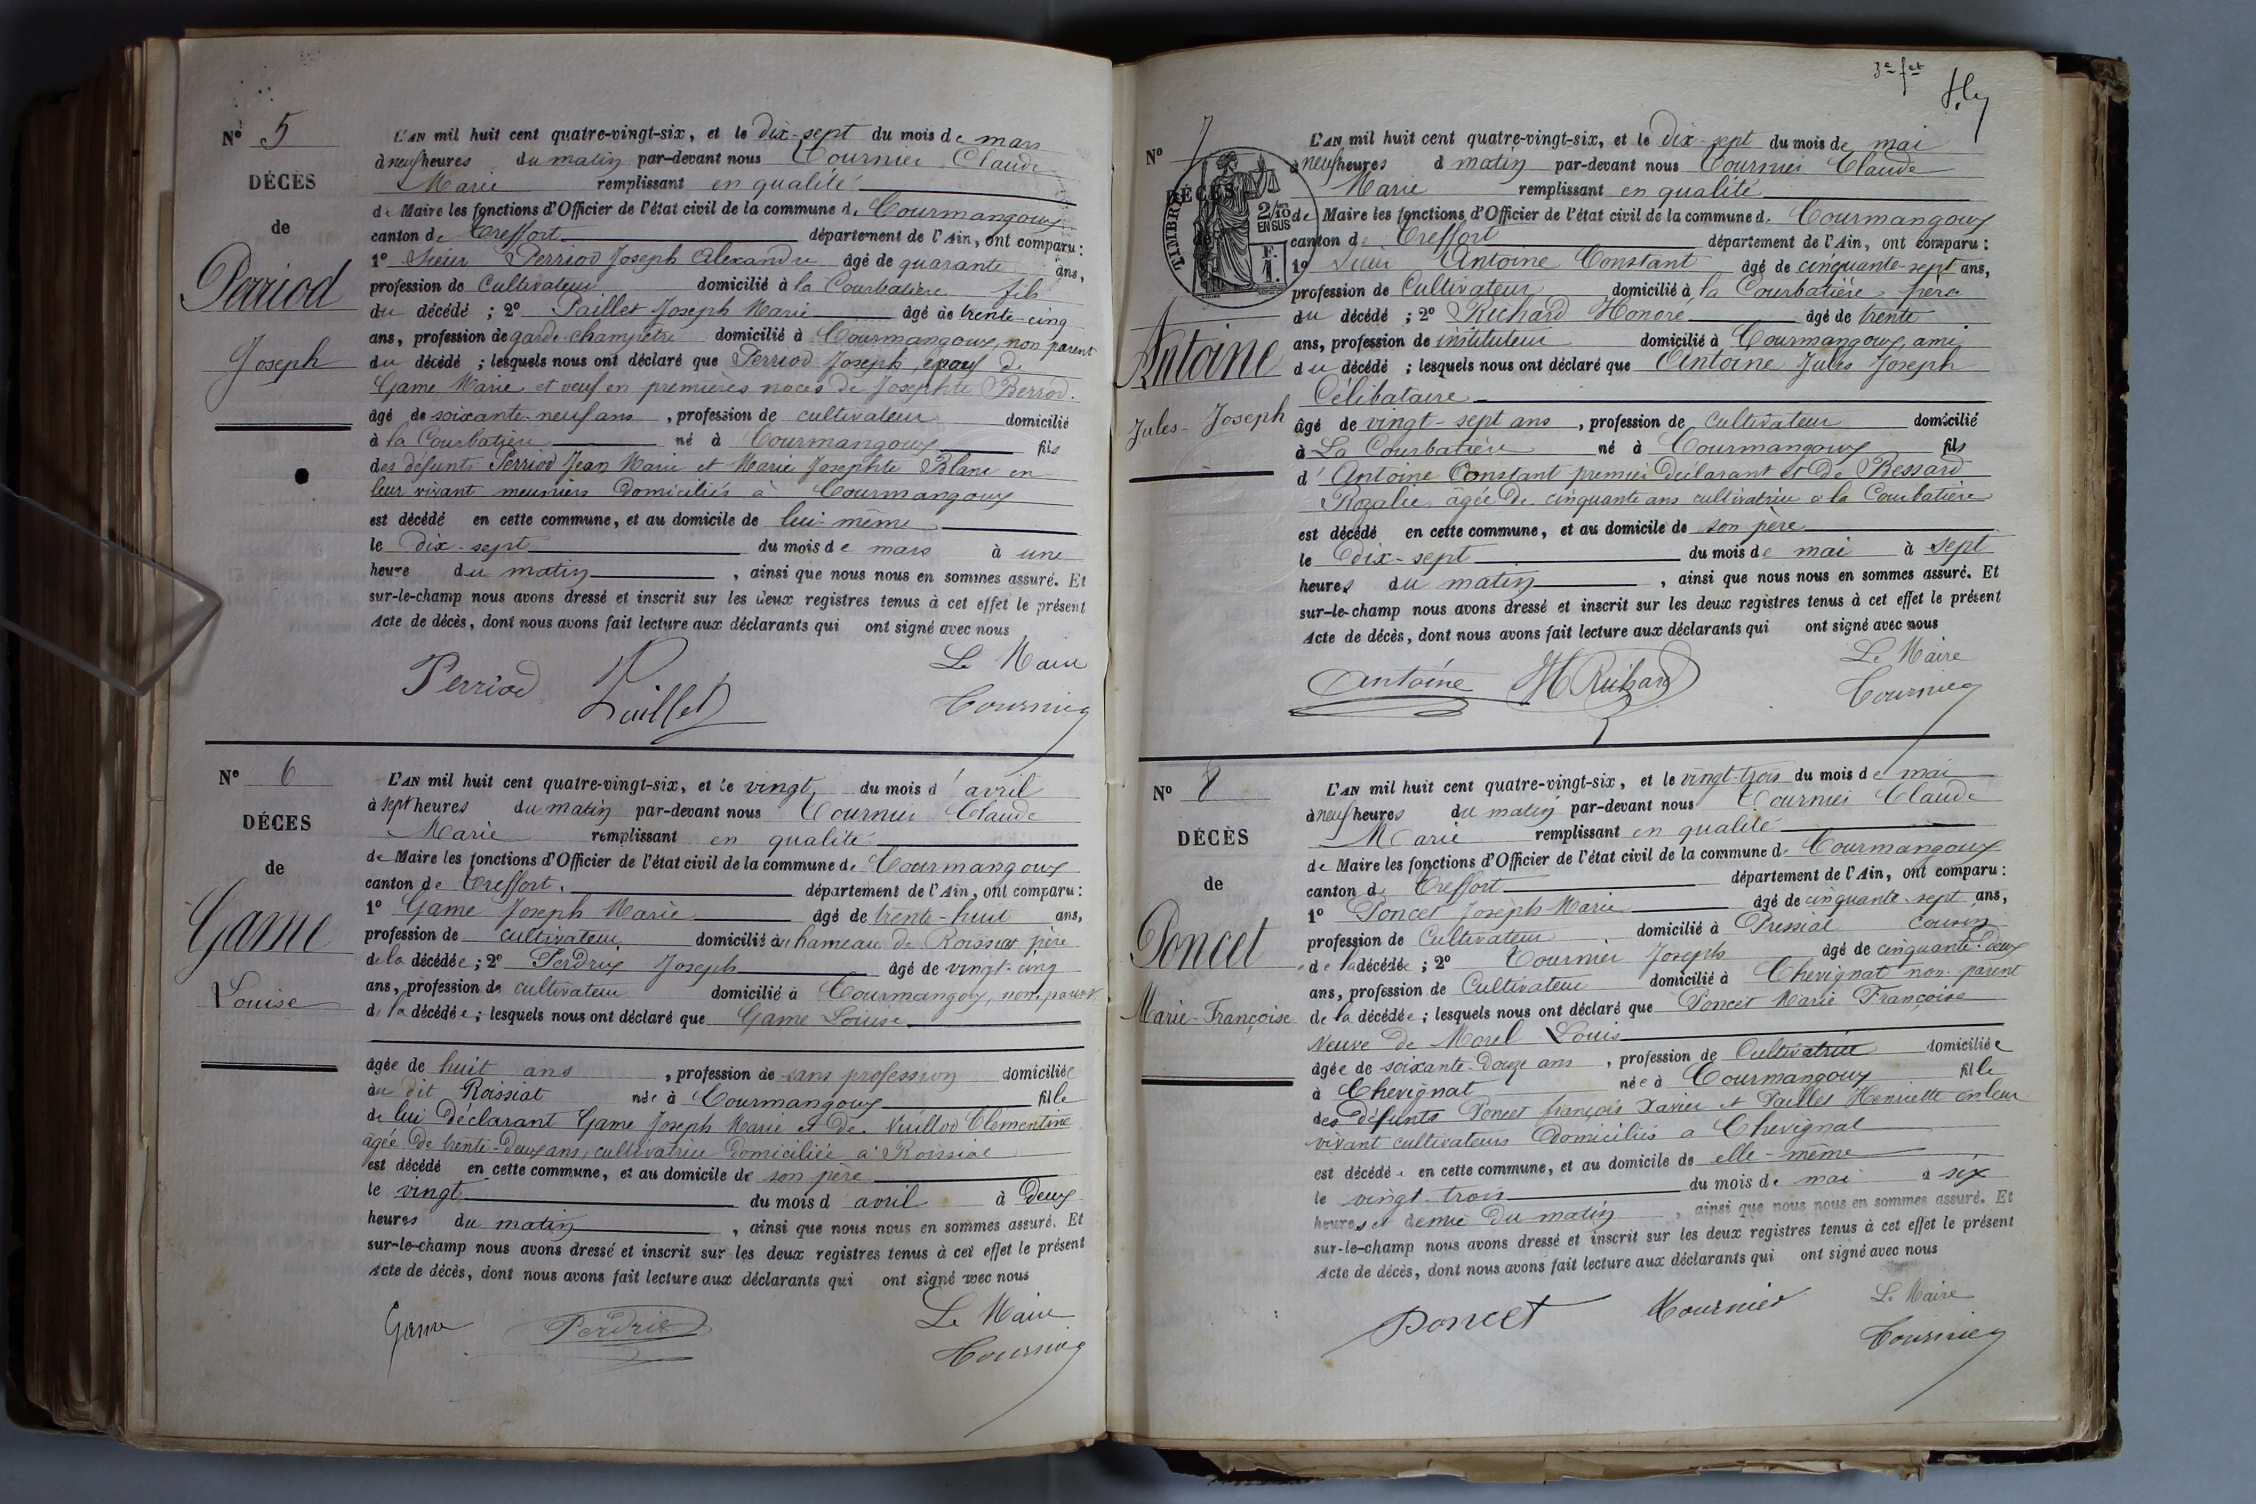 Nº 5
DÉCÈS
de
Perriod
Joseph
L'AN mil huit cent quatre-vingt-six, et le Dix-sept du mois de mars
à neuf heures du matin par-devant nous Tournier Claude
Marie remplissant en qualité
de Maire les fonctions d'Officier de l'état civil de la commune de Courmangoux
canton de Treffort département de l'Ain, ont comparu :
1º Sieur Perriod Joseph Alexandre âgé de quarante ans,
profession de Cultivateur domicilié à la Courbatière fils
du décédé ; 2º Paillet Joseph Marie âgé de trente-cinq
ans, profession de garde champêtre domicilié à Courmangoux, non parent
du décédé ; lesquels nous ont déclaré que Perriod Joseph, époux de
Game Marie et veuf en premières noces de Josephte Berrod.
âgé de soixante-neuf ans, profession de cultivateur domicilié
à la Courbatière né à Courmangoux fils
des défunts Perriod Jean Marie et Marie Josephte Blanc en
leur vivant meuniers domiciliés à Courmangoux
est décédé en cette commune, et au domicile de lui-même
le dix-sept du mois de mars à une
heure du matin, ainsi que nous nous en sommes assuré. Et
sur-le-champ nous avons dressé et inscrit sur les deux registres tenus à cet effet le présent
Acte de décès, dont nous avons fait lecture aux déclarants qui ont signé avec nous
Le Maire
Perriod Paillet Tournier
Nº 6
DÉCES
de
Game
Louise
L'AN mil huit cent quatre-vingt-six, et le vingt du mois d'avril
à sept heures du matin par-devant nous Tournier Claude
Marie remplissant en qualité
de Maire les fonctions d'Officier de l'état civil de la commune de Courmangoux
canton de Treffort. département de l'Ain, ont comparu :
1º Game Joseph Marie âgé de trente-huit ans,
profession de cultivateur domicilié au hameau de Roissiat père
de la décédée ; 2º Perdrix Joseph âgé de vingt-cinq
ans, profession de cultivateur domicilié à Courmangoux, non parent
de la décédée ; lesquels nous ont déclaré que Game Louise
âgée de huit ans, profession de sans profession domiciliée
au dit Roissiat née à Courmangoux fille
de lui Déclarant Game Joseph Marie et de Vuillod Clementine
âgée de trente-deux ans, cultivatrice domiciliée à Roissiat
est décédé en cette commune, et au domicile de son père
le vingt du mois d avril à Deux
heures du matin, ainsi que nous nous en sommes assuré. Et
sur-le-champ nous avons dressé et inscrit sur les deux registres tenus à cet effet le présent
Acte de décès, dont nous avons fait lecture aux déclarants qui ont signé avec nous
Le Maire
Game Perdrix Tournier
3e fet
Nº 7
DÉCÈS
TIMBRE
2/10 EN SUS
F. 1
Antoine
Jules-Joseph
L'AN mil huit cent quatre-vingt-six, et le Dix-sept du mois de mai
à neuf heures d matin par-devant nous Tournier Claude
Marie remplissant en qualité
de Maire les fonctions d'Officier de l'état civil de la commune d. Courmangoux
canton de Treffort département de l'Ain, ont comparu :
1º Sieur Antoine Constant âgé de cinquante-sept ans,
profession de Cultivateur domicilié à la Courbatière père
du décédé ; 2º Richard Honoré âgé de trente
ans, profession de instituteur domicilié à Courmangoux, ami
du décédé ; lesquels nous ont déclaré que Antoine Jules Joseph
Célibataire
âgé de vingt-sept ans, profession de cultivateur domicilié
à La Courbatière né à Courmangoux fils
d'Antoine Constant premier déclarant et de Bessard
Rozalie, âgée de cinquante ans cultivatrice à la Courbatière
est décédé en cette commune, et au domicile de son père
le dix-sept du mois de mai à sept
heures du matin, ainsi que nous nous en sommes assuré. Et
sur-le-champ nous avons dressé et inscrit sur les deux registres tenus à cet effet le présent
Acte de décès, dont nous avons fait lecture aux déclarants qui ont signé avec nous
Le Maire
Antoine H Richard Tournier
Nº 8
DÉCÈS
de
Poncet
Marie-Françoise
L'AN mil huit cent quatre-vingt-six, et le vingt-trois du mois de mai
à neuf heures du matin par-devant nous Tournier Claude
Marie remplissant en qualité
de Maire les fonctions d'Officier de l'état civil de la commune d. Courmangoux
canton de Treffort département de l'Ain, ont comparu :
1º Poncet Joseph-Marie âgé de cinquante-sept ans,
profession de Cultivateur domicilié à Pressiat cousin
de la décédée ; 2º Tournier Joseph âgé de cinquante-deux
ans, profession de Cultivateur domicilié à Chevignat non parent
de la décédée ; lesquels nous ont déclaré que Poncet Marie Françoise
Veuve de Morel Louis
âgée de soixante-douze ans, profession de Cultivatrice domiciliée
à Chevignat née à Courmangoux fille
des défunts Poncet françois Xavier et Paillet Henriette en leur
vivant cultivateurs domiciliés a Chevignat
est décédée en cette commune, et au domicile de elle-même
le vingt-trois du mois de mai à six
heures et demie du matin, ainsi que nous nous en sommes assuré. Et
sur-le-champ nous avons dressé et inscrit sur les deux registres tenus à cet effet le présent
Acte de décès, dont nous avons fait lecture aux déclarants qui ont signé avec nous
Le Maire
Poncet Tournier Tournier